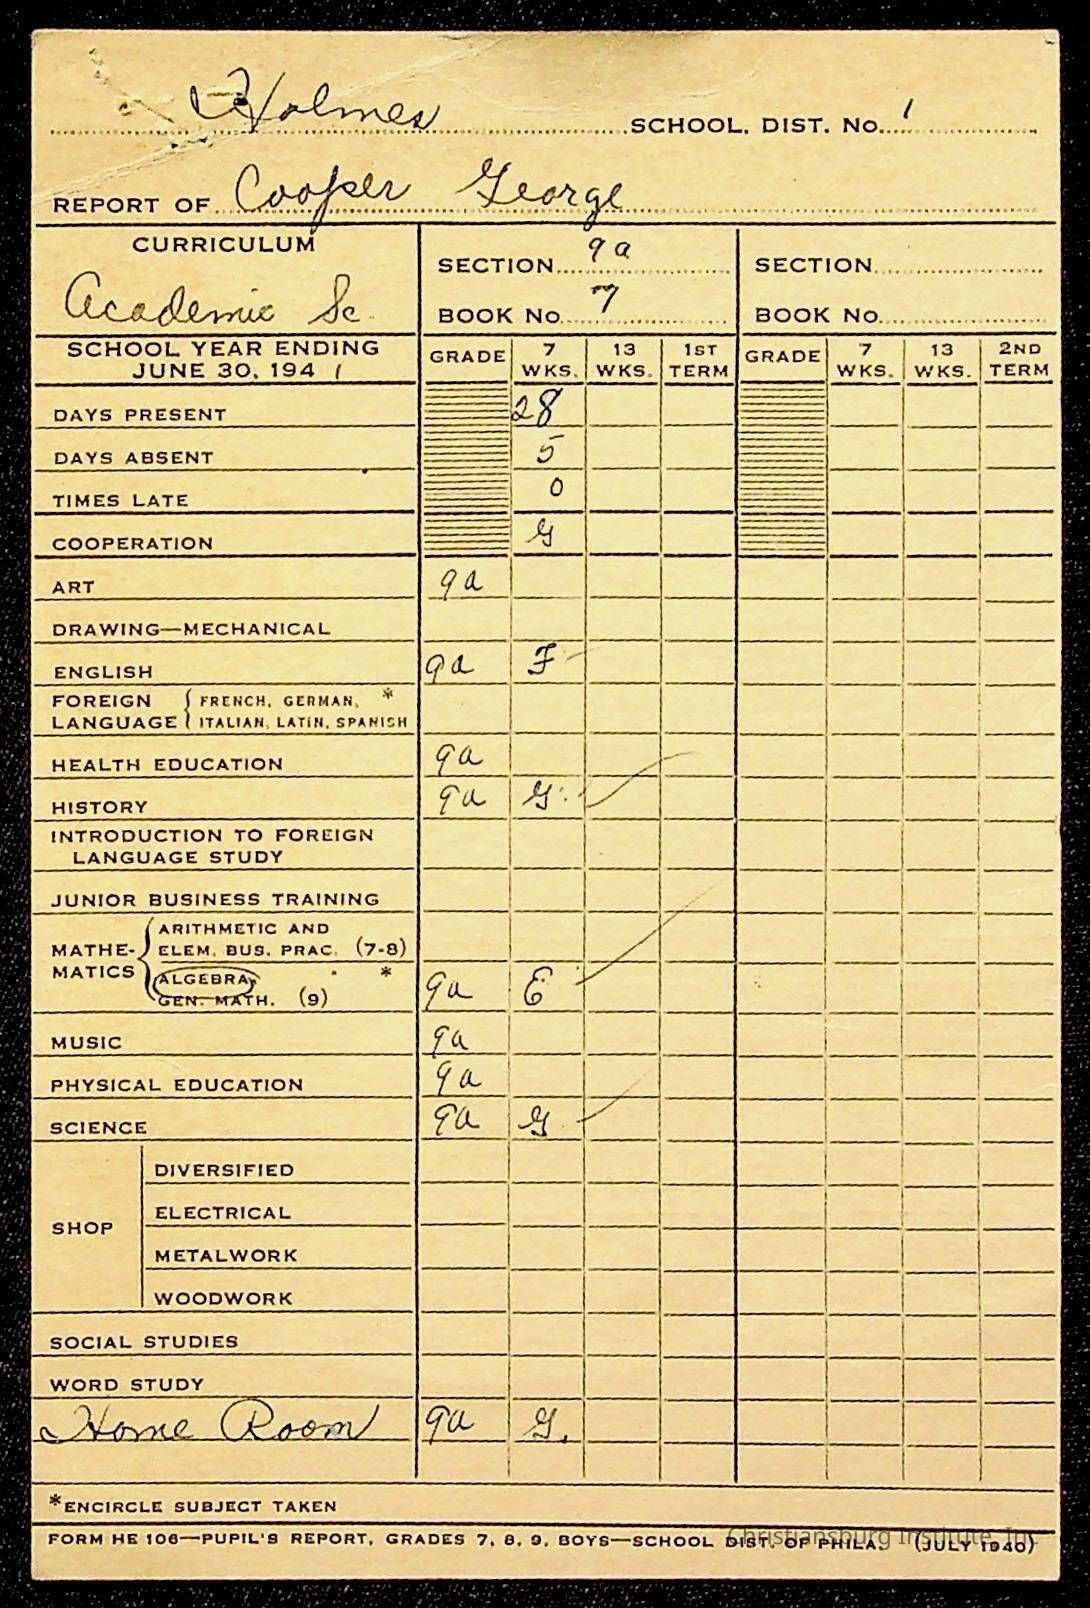 Holmes SCHOOL, DIST. No. 1
REPORT OF Cooper George
CURRICULUM
Academic Sc.
SECTION 9a
BOOK No. 7
SECTION
BOOK No.
SCHOOL YEAR ENDING
JUNE 30, 1941
GRADE 7 WKS. 13 WKS. 1ST TERM GRADE 7 WKS. 13 WKS. 2ND TERM
DAYS PRESENT 28
DAYS ABSENT 5
TIMES LATE 0
COOPERATION G
ART 9a
DRAWING—MECHANICAL
ENGLISH 9a F
FOREIGN LANGUAGE { FRENCH, GERMAN, *
ITALIAN, LATIN, SPANISH
HEALTH EDUCATION 9a
HISTORY 9a G
INTRODUCTION TO FOREIGN
LANGUAGE STUDY
JUNIOR BUSINESS TRAINING
MATHEMATICS { ARITHMETIC AND
ELEM. BUS. PRAC. (7-8)
ALGEBRA, *
GEN. MATH. (9) 9a E
MUSIC 9a
PHYSICAL EDUCATION 9a
SCIENCE 9a G
SHOP
DIVERSIFIED
ELECTRICAL
METALWORK
WOODWORK
SOCIAL STUDIES
WORD STUDY
Home Room 9a G.
*ENCIRCLE SUBJECT TAKEN
FORM HE 106—PUPIL'S REPORT, GRADES 7, 8, 9, BOYS—SCHOOL DIST. OF PHILA. (JULY 1940)
Christiansburg Institute, Inc